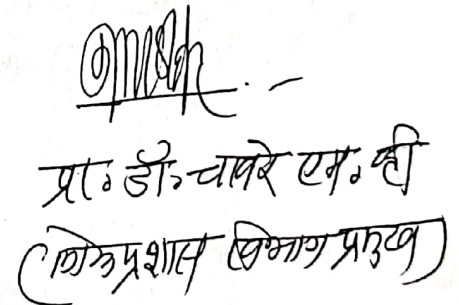 प्रा. डॉ. चावरे एम. व्ही
(लोकप्रशासन विभाग प्रमुख)